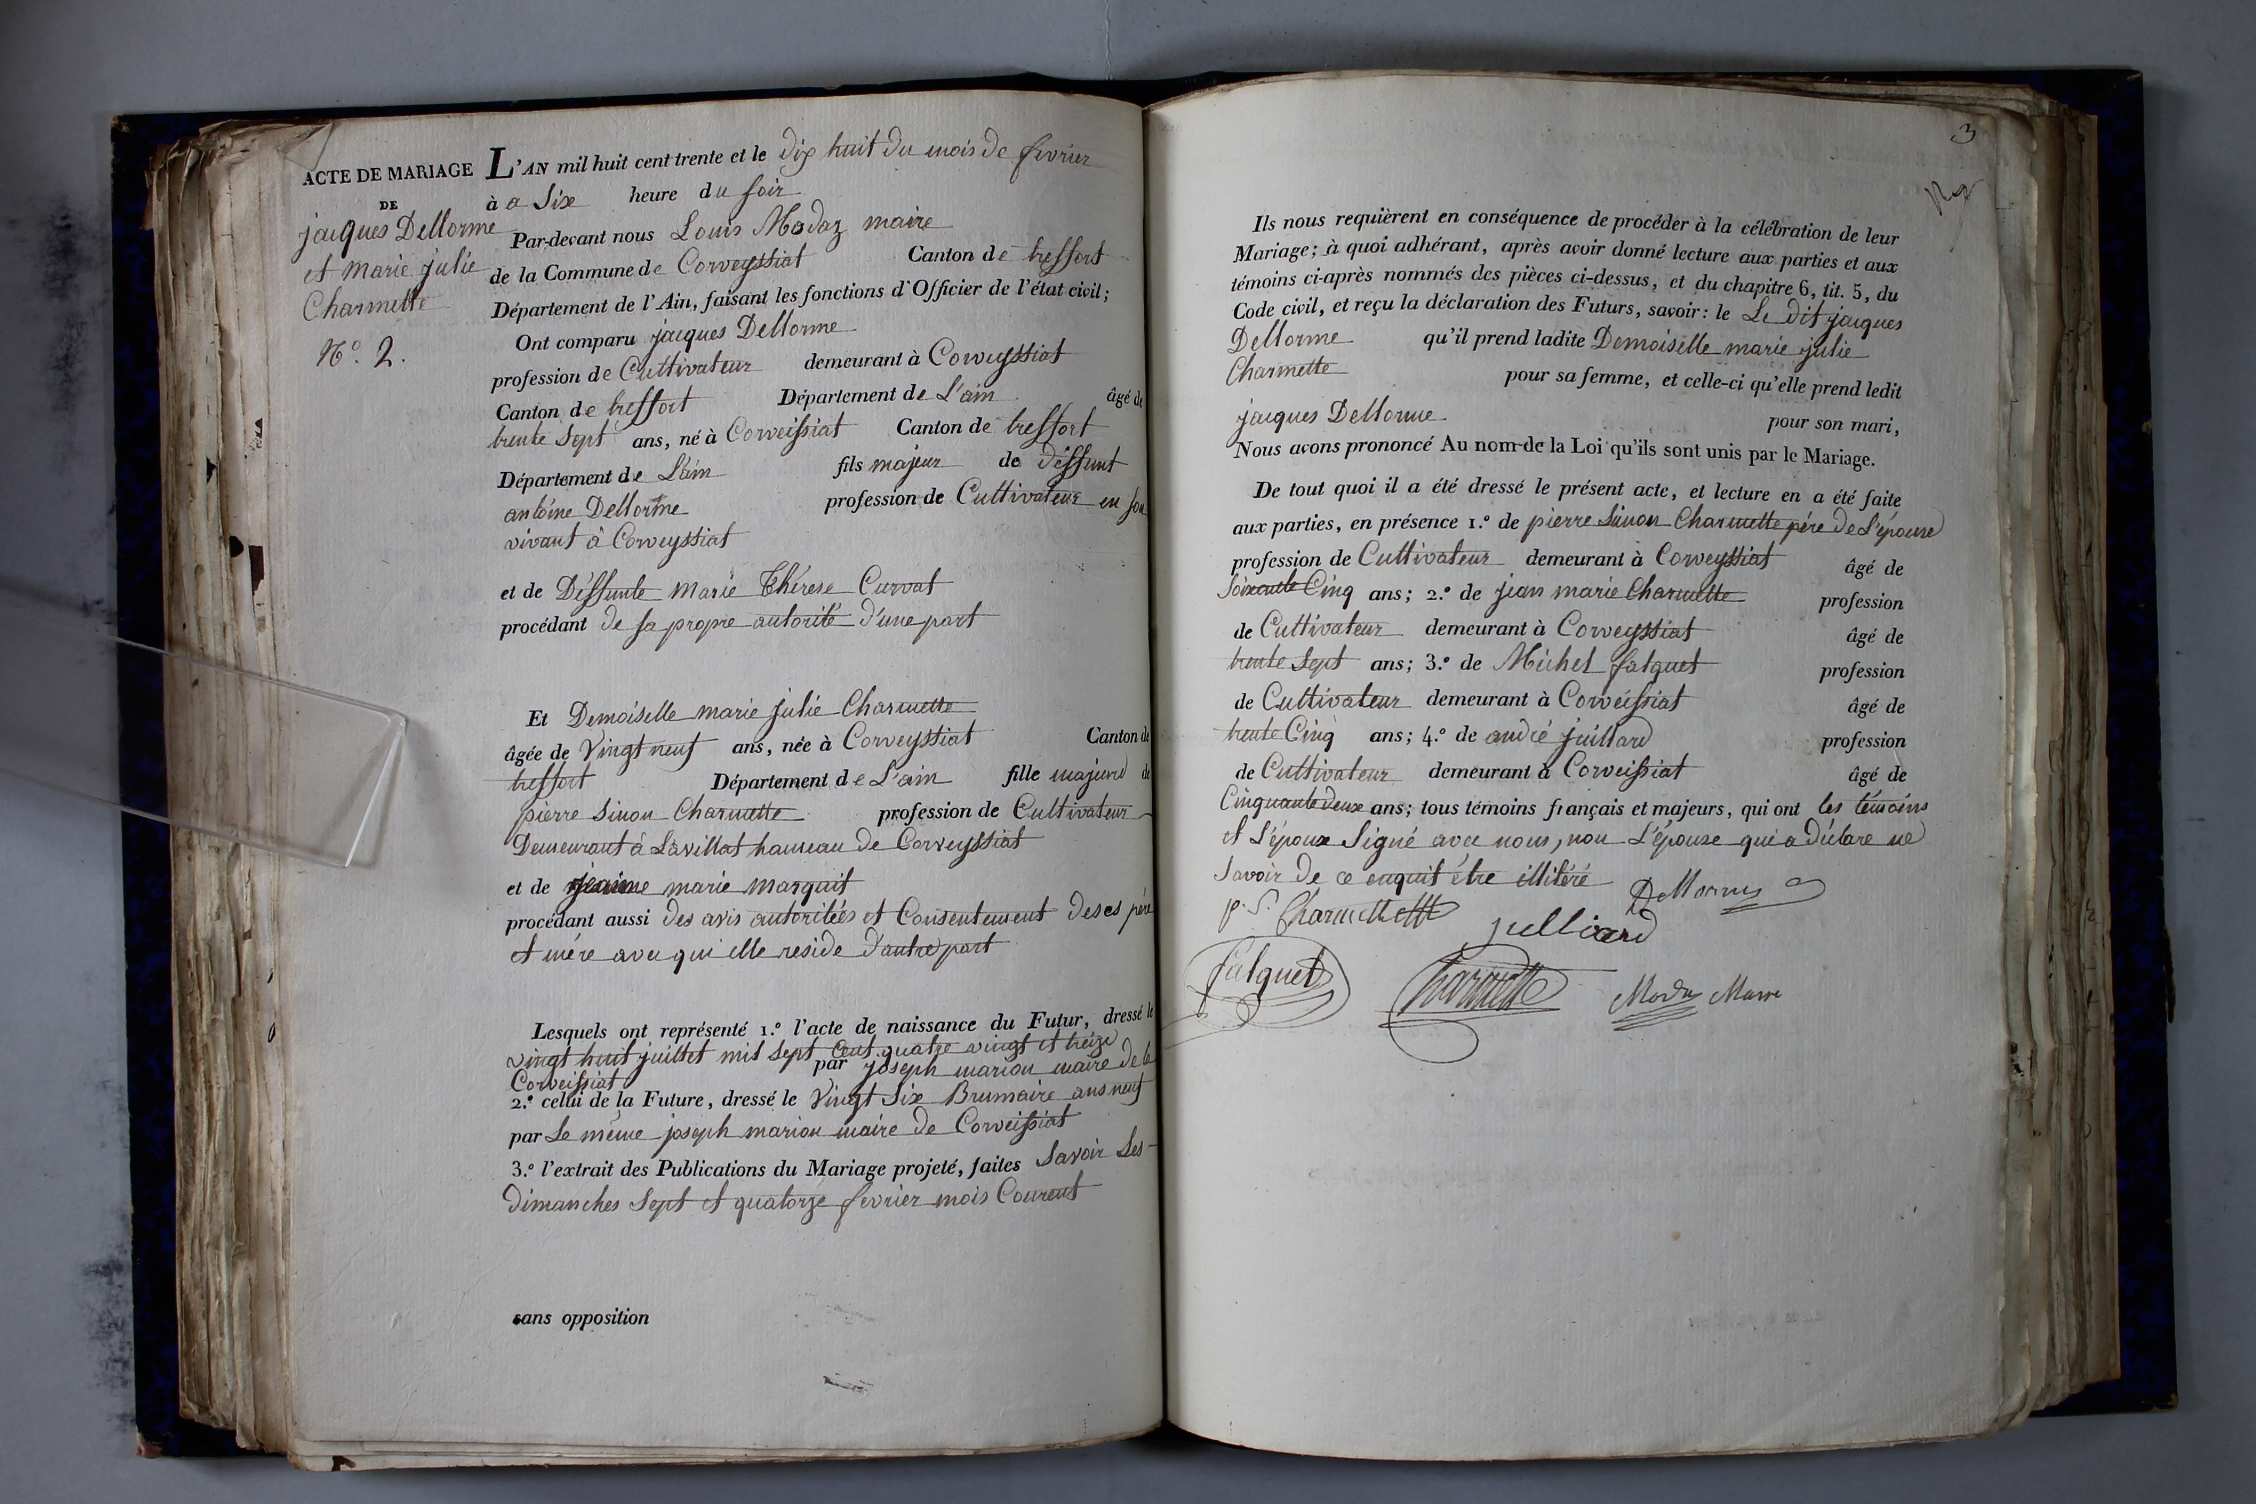 ACTE DE MARIAGE
DE
jacques Dellorme
et marie julie
Charmette
N.o 2.
L'AN mil huit cent trente et le dix huit du mois de fevrier
à a Six heure du soir
Par-devant nous Louis Modaz maire
de la Commune de Corveyssiat Canton de treffort
Département de l'Ain, faisant les fonctions d'Officier de l'état civil;
Ont comparu jacques Dellorme
profession de Cultivateur demeurant à Corveyssiat
Canton de treffort Département de L'ain âgé de
trente Sept ans, né à Corveissiat Canton de treffort
Département de L'ain fils majeur de déffunt
antoine Dellorme profession de Cultivateur en son
vivant à Corveyssiat
et de Déffunte Marie Thérese Curvat
procédant de sa propre autorité d'une part
Et Demoiselle marie julie Charmette
âgée de Vingt neuf ans, née à Corveyssiat Canton de
treffort Département de L'ain fille majeure de
pierre Simon Charmette profession de Cultivateur
Demeurant à Lavillat hameau de Corveyssiat
et de jeanne marie marquis
procédant aussi des avis autoritées et Consentement de ses père
et mére avec qui elle reside d'autre part
Lesquels ont représenté 1.o l'acte de naissance du Futur, dressé le
vingt huit juillet mil Sept Cent quatre vingt et treize
par joseph marion maire de la
Corveissiat
2.o celui de la Future, dressé le Vingt Six Brumaire ans neuf
par Le même joseph marion maire de Corveissiat
3.o l'extrait des Publications du Mariage projeté, faites Savoir Les
dimanches Sept et quatorze fevrier mois Courent
sans opposition
3
Ils nous requièrent en conséquence de procéder à la célébration de leur
Mariage; à quoi adhérant, après avoir donné lecture aux parties et aux
témoins ci-après nommés des pièces ci-dessus, et du chapitre 6, tit. 5, du
Code civil, et reçu la déclaration des Futurs, savoir: le Le dit jacques
Dellorme qu'il prend ladite Demoiselle marie julie
Charmette pour sa femme, et celle-ci qu'elle prend ledit
jacques Dellorme pour son mari,
Nous avons prononcé Au nom de la Loi qu'ils sont unis par le Mariage.
De tout quoi il a été dressé le présent acte, et lecture en a été faite
aux parties, en présence 1.o de pierre Simon Charmette pére de L'épouse
profession de Cultivateur demeurant à Corveyssiat âgé de
Soixante Cinq ans; 2.o de jean marie Charmette profession
de Cultivateur demeurant à Corveyssiat âgé de
trente Sept ans; 3.o de Michel falquet profession
de Cultivateur demeurant à Corveissiat âgé de
trente Cinq ans; 4.o de andré juillard profession
de Cultivateur demeurant à Corveissiat âgé de
Cinquante deux ans; tous témoins français et majeurs, qui ont les témoins
et L'époux Signé avec nous, non L'épouse qui a déclare ne
Savoir de ce enquit être illitéré
Dellorme
p. S. Charmette
julliard
falquet
Charmette
Modaz Maire